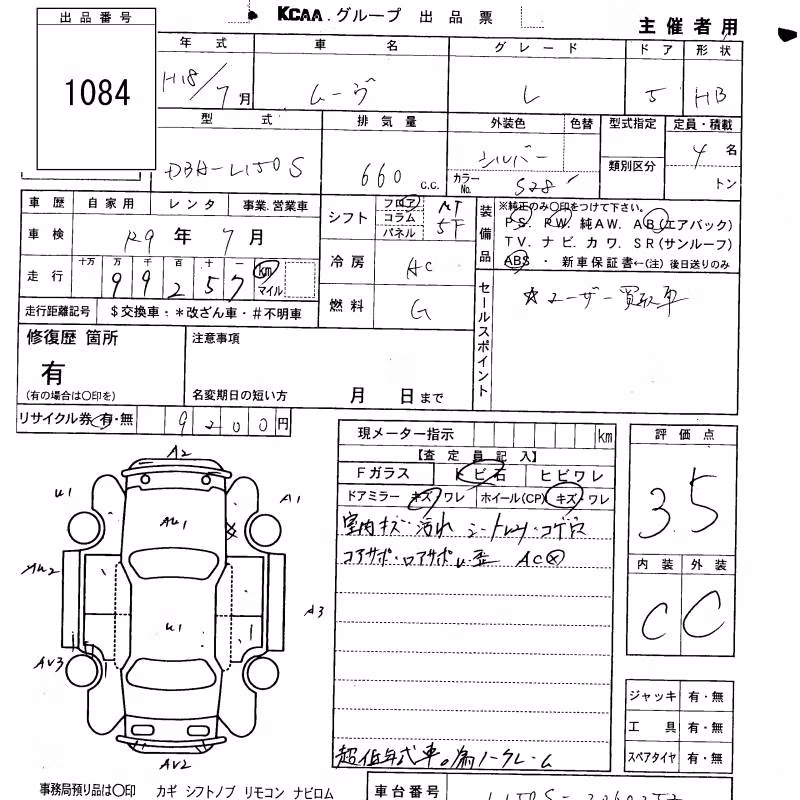 KCAA.グループ 出品票
主催者用
出品番号
1084
年式 車名 グレード ドア 形状
H18/7月 ムーヴ L 5 HB
型式 排気量 外装色 色替 型式指定 定員・積載
DBA-L150S 660 C.C. シルバー 4名
カラーNo. S28 類別区分 トン
車歴 自家用 レンタ 事業.営業車
車検 R9年7月
走行 十万 万 千 百 十 一 km マイル
99257
走行距離記号 $交換車・*改ざん車・#不明車
シフト フロア コラム パネル AT 5F
冷房 AC
燃料 G
装備品 ※純正のみ〇印をつけて下さい。
PS. PW. 純AW. AB(エアバック)
TV. ナビ. カワ. SR(サンルーフ)
ABS ・ 新車保証書←(注) 後日送りのみ
セールスポイント
☆ユーザー買取車
修復歴 箇所
有
(有の場合は〇印を)
注意事項
名変期日の短い方 月 日まで
リサイクル券 有・無 9200円
現メーター指示 km
【査定員記入】
Fガラス トビ石 ヒビワレ
ドアミラー キズ・ワレ ホイール(CP) キズ・ワレ
室内キズ・汚れ シートスレ・コゲ穴
コアサポ・ロアサポU.歪 AC×
超低年式車。為ノークレーム
評価点
3.5
内装 外装
C C
ジャッキ 有・無
工具 有・無
スペアタイヤ 有・無
A2
U1
A1
AU1
AU2
U1
A3
AV3
AV2
事務局預り品は〇印 カギ シフトノブ リモコン ナビロム
車台番号